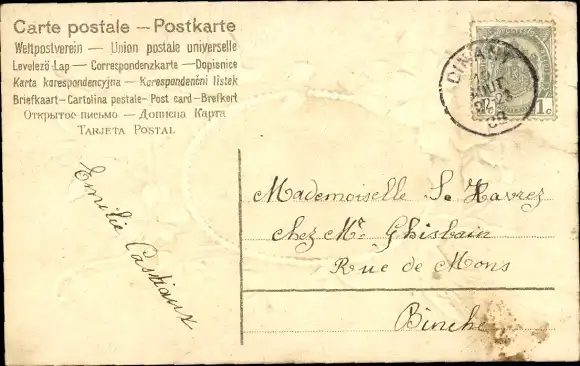 Carte postale — Postkarte
Weltpostverein — Union postale universelle
Levelező-Lap — Correspondenzkarte — Dopisnice
Karta korespondencyjna — Korespondenční listek
Briefkaart - Cartolina postale - Post card - Brefkort
Открытое письмо — Дописна Карта
TARJETA POSTAL
DINANT
AOUT
1 c
Emilie Castiaux
Mademoiselle S. Havrez
chez Mr. Ghislain
Rue de Mons
Binche